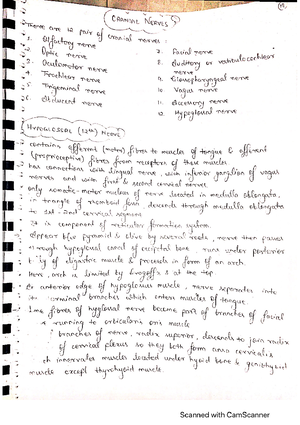 CRANIAL NERVES
There are 12 pair of cranial nerves :
1. Olfactory nerve
2. Optic nerve
3. Oculomotor nerve
4. Trochlear nerve
5. Trigeminal nerve
6. Abducent nerve
7. Facial nerve
8. Auditory or vestibulocochlear
nerve
9. Glossopharyngeal nerve
10. Vagus nerve
11. Accessory nerve
12. Hypoglossal nerve
HYPOGLOSSAL (12th) NERVE
contains efferent (motor) fibres to muscles of tongue & afferent
(proprioceptive) fibres from receptors of these muscles
has connections with lingual nerve, with inferior ganglion of vagus
nerves and with first & second cervical nerves
only somatic-motor nucleus of nerve located in medulla oblongata,
in triangle of rhomboid four, descends through medulla oblongata
to 1st - 2nd cervical segment
It is component of reticular formation system.
appear b/w pyramid & olive by several roots, nerve then passes
through hypoglossal canal of occipital bone. runs under posterior
of digastric muscle & proceeds in form of an arch.
here, arch is limited by at the top.
anterior edge of hypoglossus muscle, nerve separates into
its terminal branches which enters muscles of tongue.
fibres of hypoglossal nerve become part of branches of facial
running to orbicularis oris muscle
branches of nerve, radix superior, descends to join radix
of cervical plexus so they both form ansa cervicalis
innervates muscles located under hyoid bone & geniohyoid
muscle except thyrohyoid muscle.
Scanned with CamScanner